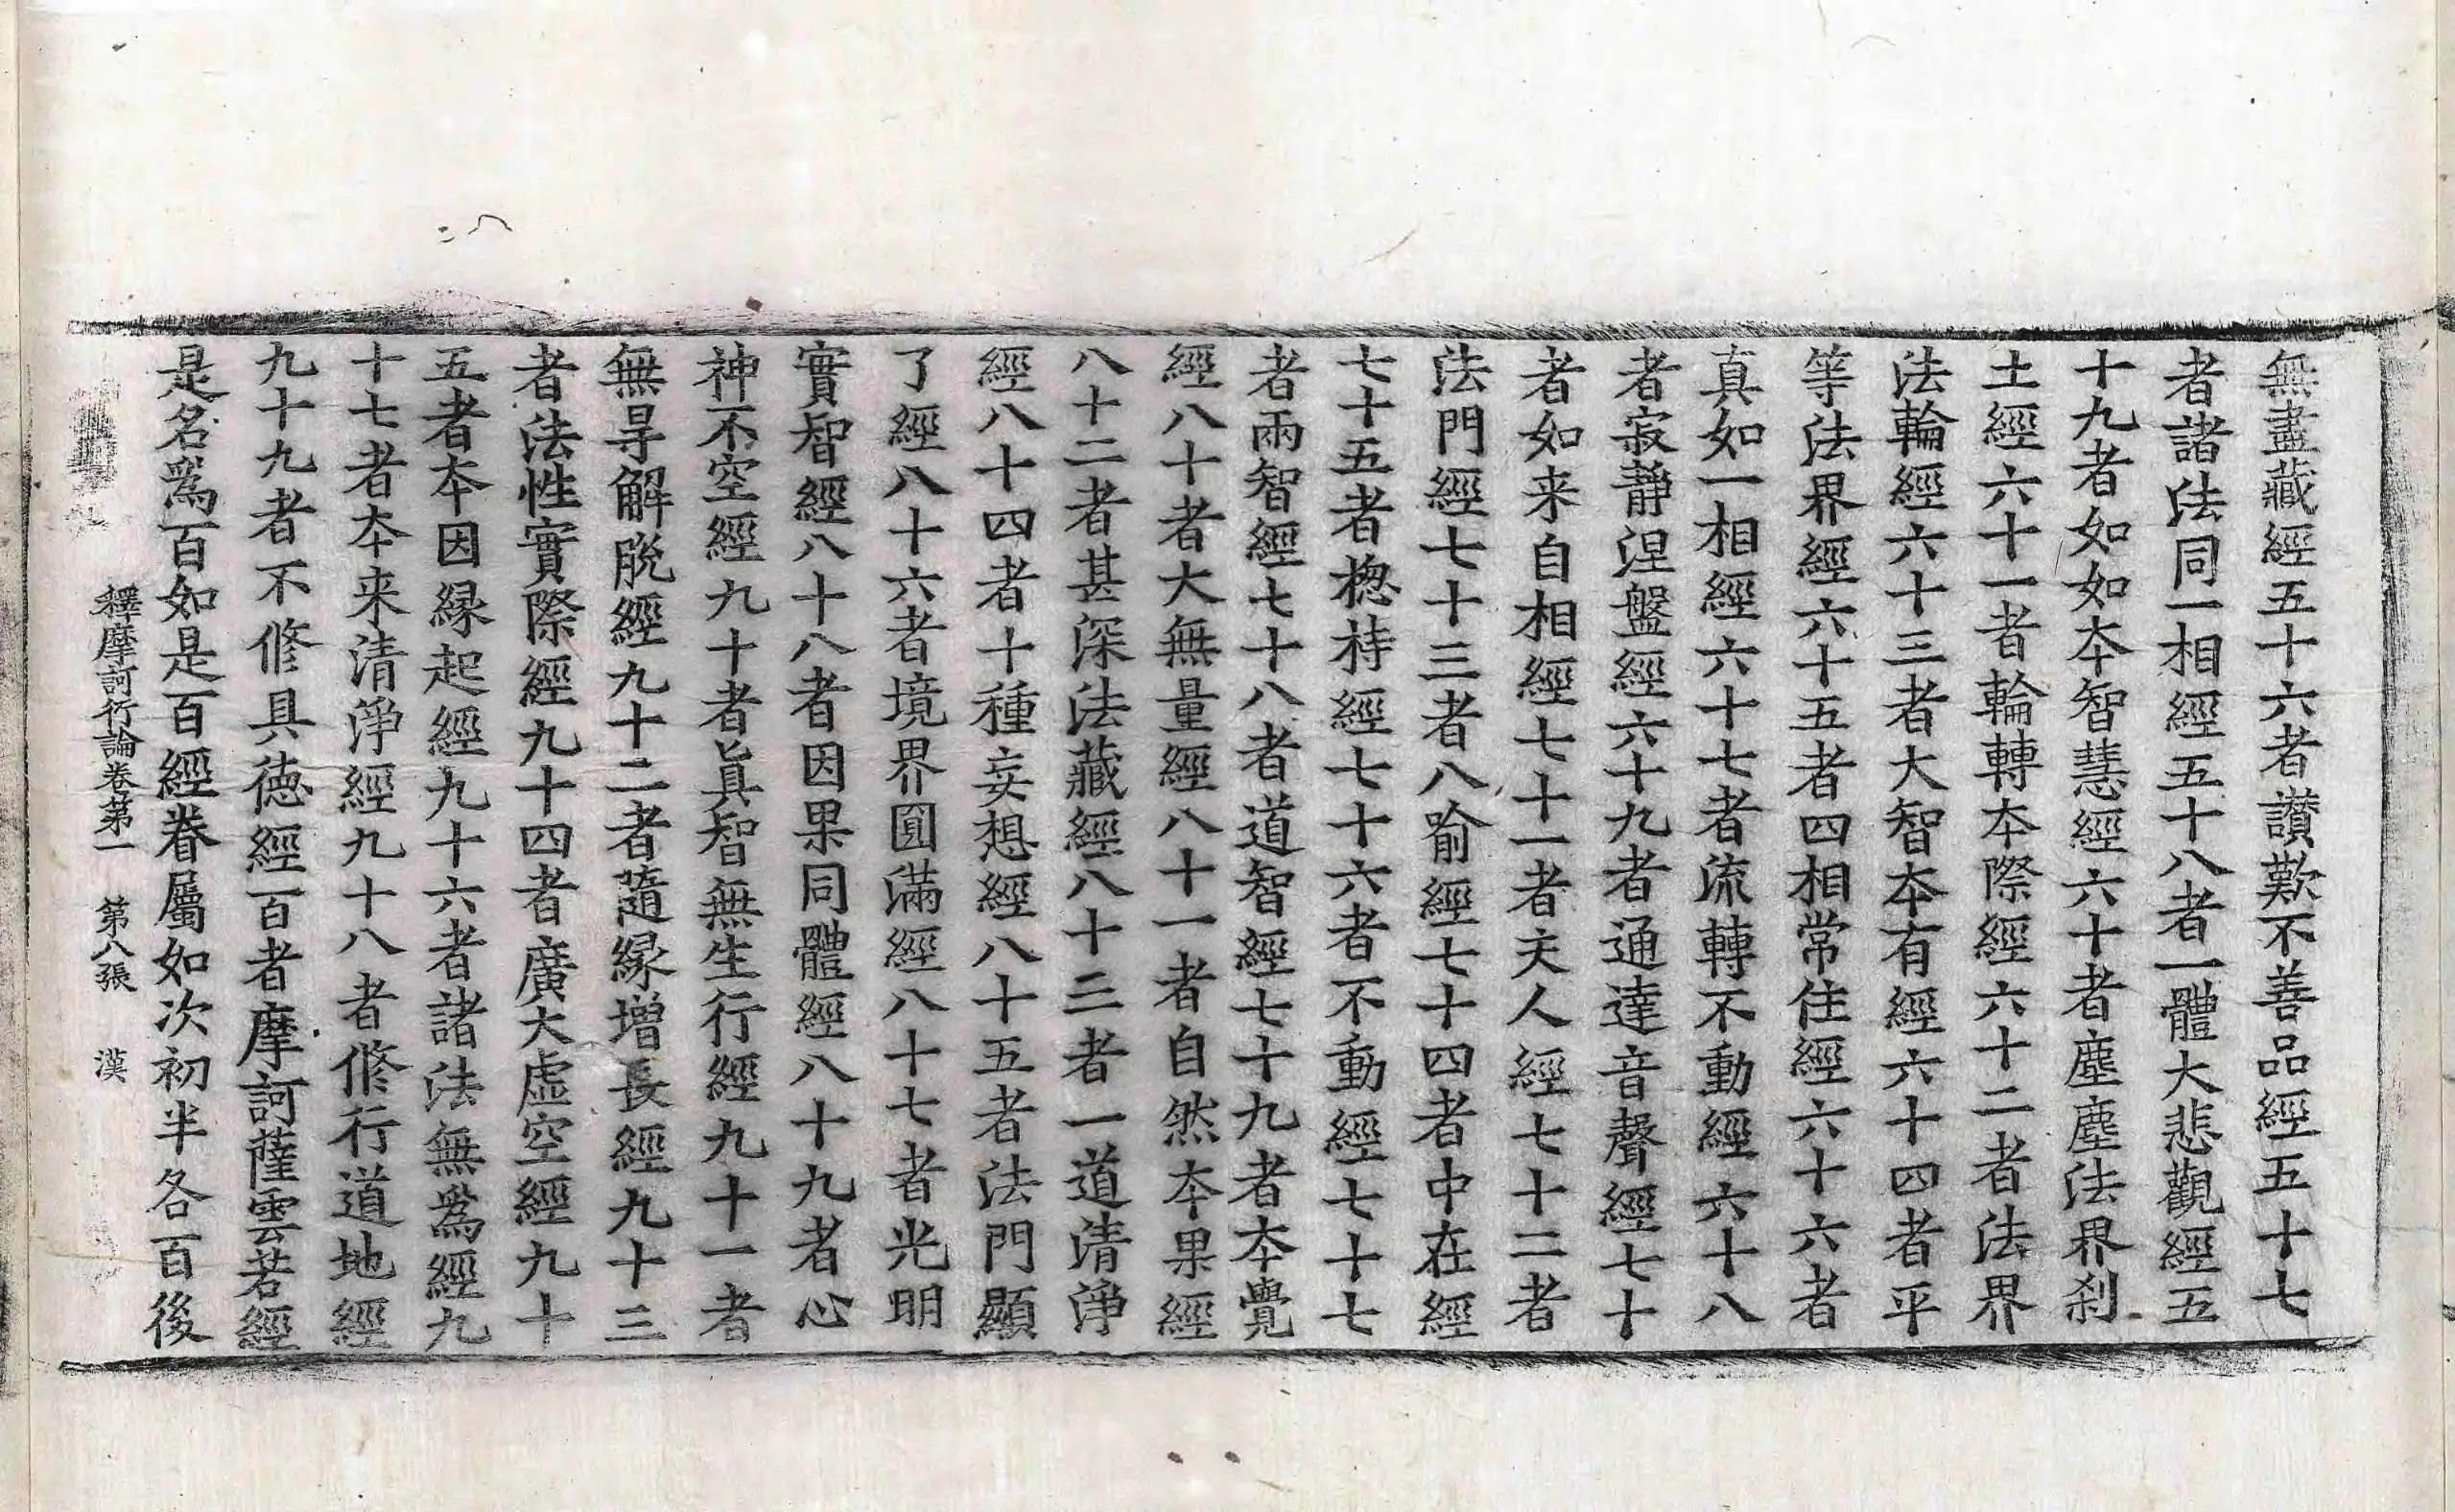 無盡藏經五十六者讃歎不善品經五十七
者諸法同一相經五十八者一體大悲觀經五
十九者如如夲智慧經六十者塵塵法界刹
土經六十一者輪轉夲際經六十二者法界
法輪經六十三者大智夲有經六十四者平
等法界經六十五者四相常住經六十六者
真如一相經六十七者流轉不動經六十八
者寂靜涅盤經六十九者通達音聲經七十
者如来自相經七十一者夫人經七十二者
法門經七十三者八喻經七十四者中在經
七十五者揔持經七十六者不動經七十七
者兩智經七十八者道智經七十九者夲覺
經八十者大無量經八十一者自然夲果經
八十二者甚深法藏經八十三者一道清淨
經八十四者十種妄想經八十五者法門顯
了經八十六者境界圓滿經八十七者光明
實智經八十八者因果同體經八十九者心
神不空經九十者眞智無生行經九十一者
無㝵解脫經九十二者隨縁增長經九十三
者法性實際經九十四者廣大虛空經九十
五者夲因縁起經九十六者諸法無爲經九
十七者夲来清淨經九十八者修行道地經
九十九者不修具德經百者摩訶薩雲若經
是名爲百如是百經眷屬如次初半各百後
釋摩訶衍論卷第一 第八張 漢